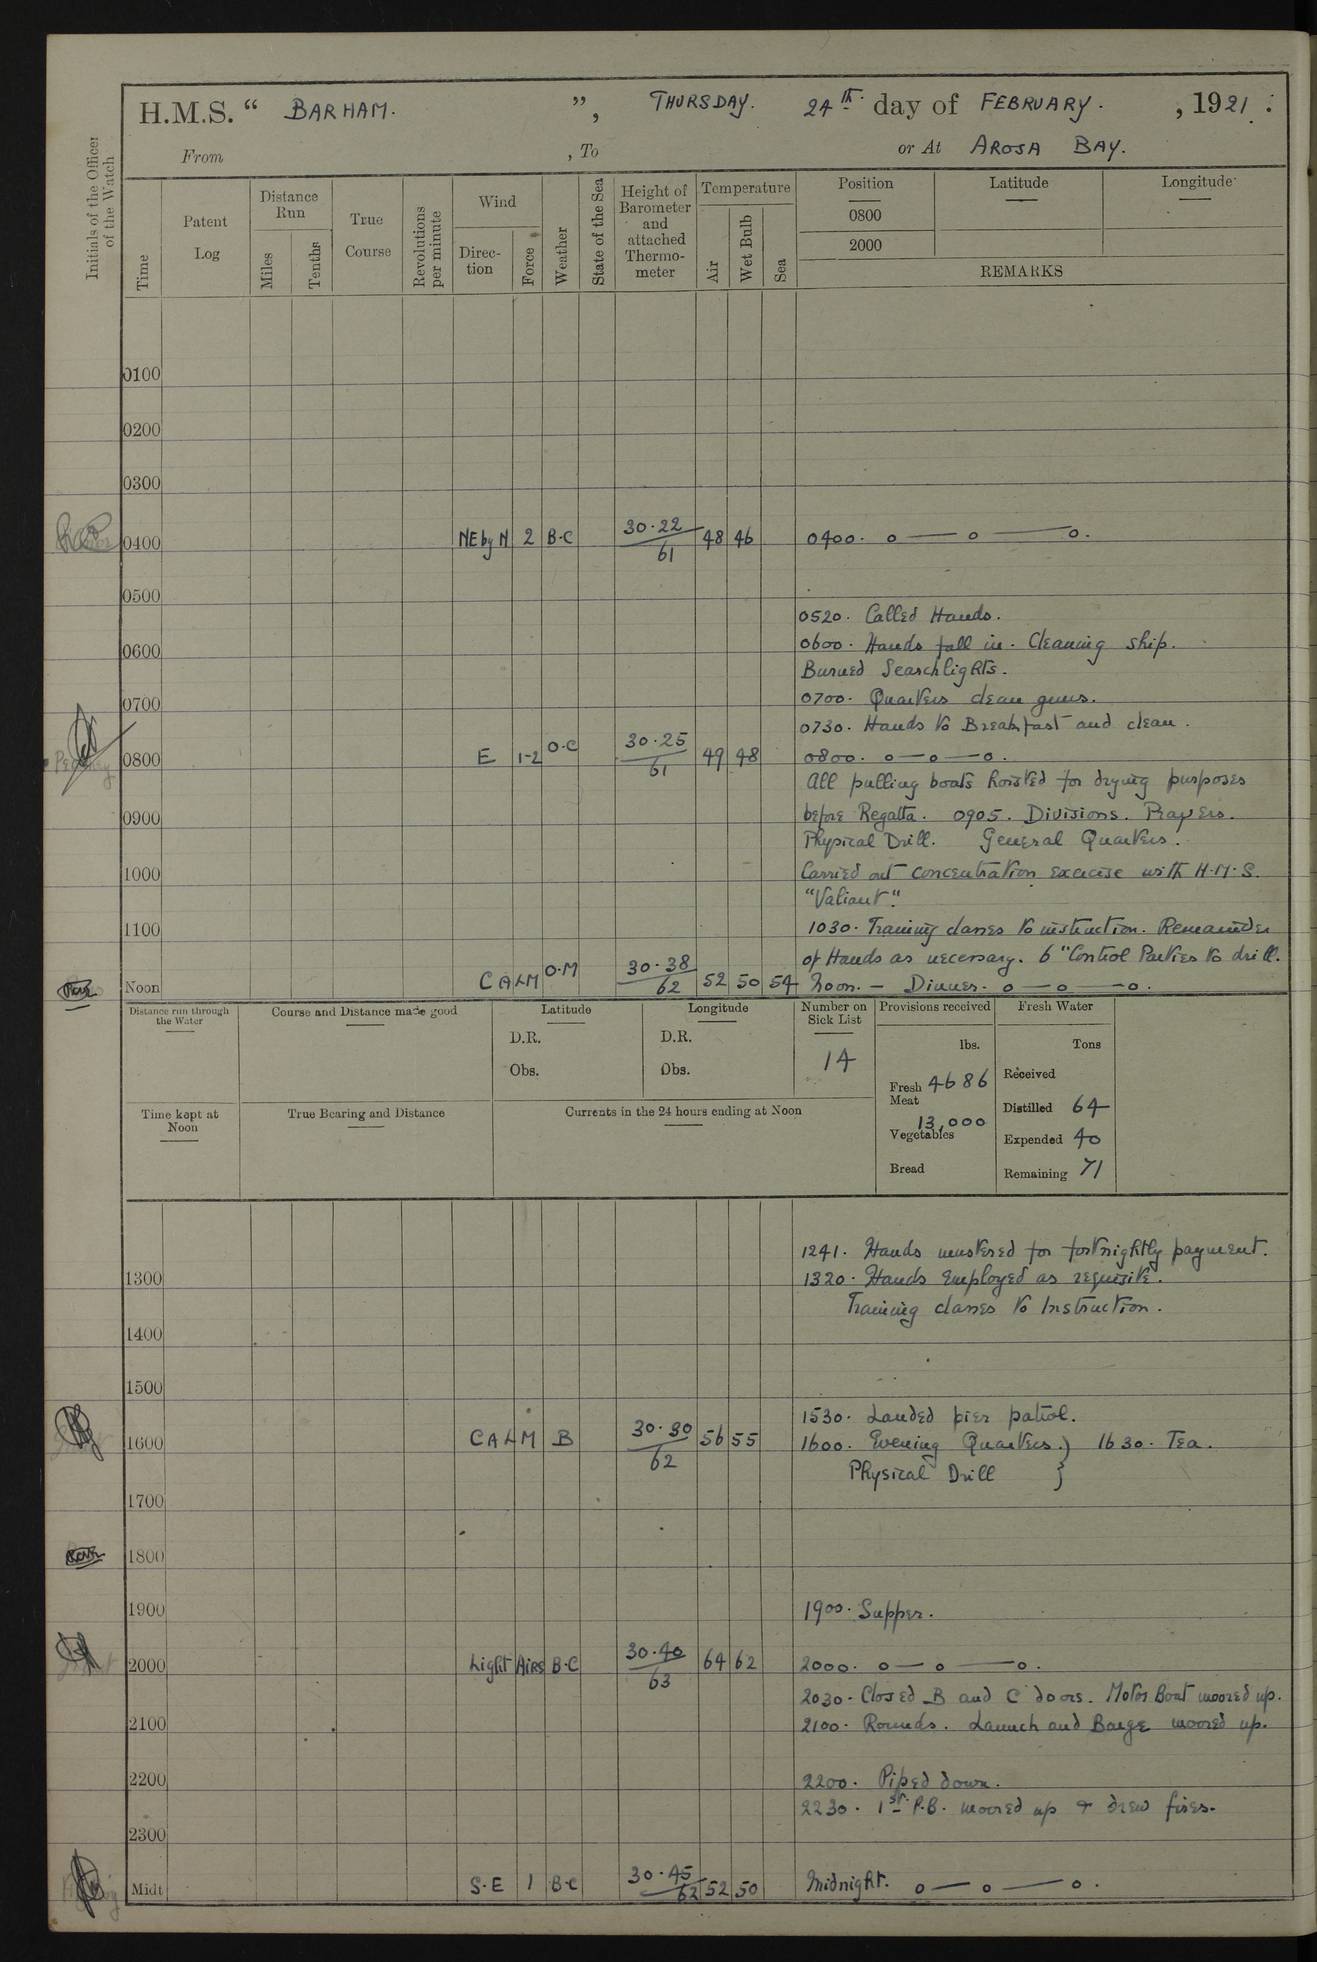 H.M.S. “ BARHAM. ”, THURSDAY. 24th day of FEBRUARY. , 1921 .
From , To or At AROSA BAY.
Initials of the Officer of the Watch
Time
Patent Log
Distance Run
Miles
Tenths
True Course
Revolutions per minute
Wind
Direc- tion
Force
Weather
State of the Sea
Height of Barometer and attached Thermo- meter
Temperature
Air
Wet Bulb
Sea
Position Latitude Longitude
0800
2000
REMARKS
0100
0200
0300
0400 NE by N 2 B.C 30.22 61 48 46 0400. o — o — o.
0500
0520. Called Hands.
0600 0600. Hands fall in. Cleaning ship.
Burned Searchlights.
0700 0700. Quarters clean guns.
0730. Hands to Breakfast and clean.
0800 E 1-2 O.C 30.25 61 49 48 0800. o — o — o.
All pulling boats hoisted for drying purposes
0900 before Regatta. 0905. Divisions. Prayers.
Physical Drill. General Quarters.
1000 Carried out concentration exercise with H.M.S.
"Valiant."
1100 1030. Training classes to instruction. Remainder
of Hands as necessary. 6" Control Parties to drill.
Noon CALM O.M 30.38 62 52 50 54 Noon. — Dinner. o — o — o.
Distance run through the Water
Course and Distance made good
Latitude
D.R.
Obs.
Longitude
D.R.
Obs.
Number on Sick List
14
Provisions received
lbs.
Fresh Meat 4686
Vegetables 13,000
Bread
Fresh Water
Tons
Received
Distilled 64
Expended 40
Remaining 71
Time kept at Noon
True Bearing and Distance
Currents in the 24 hours ending at Noon
1241. Hands mustered for fortnightly payment.
1300 1320. Hands employed as requisite.
Training classes to Instruction.
1400
1500
1530. Landed pier patrol.
1600 CALM B 30.30 62 56 55 1600. Evening Quarters.} 1630. Tea.
Physical Drill }
1700
1800
1900 1900. Supper.
2000 Light Airs B.C 30.40 63 64 62 2000. o — o — o.
2030. Closed B and C doors. Motor Boat moored up.
2100 2100. Rounds. Launch and Barge moored up.
2200 2200. Piped down.
2230. 1st P.B. moored up & drew fires.
2300
Midt S.E 1 B.C 30.45 62 52 50 Midnight. o — o — o.